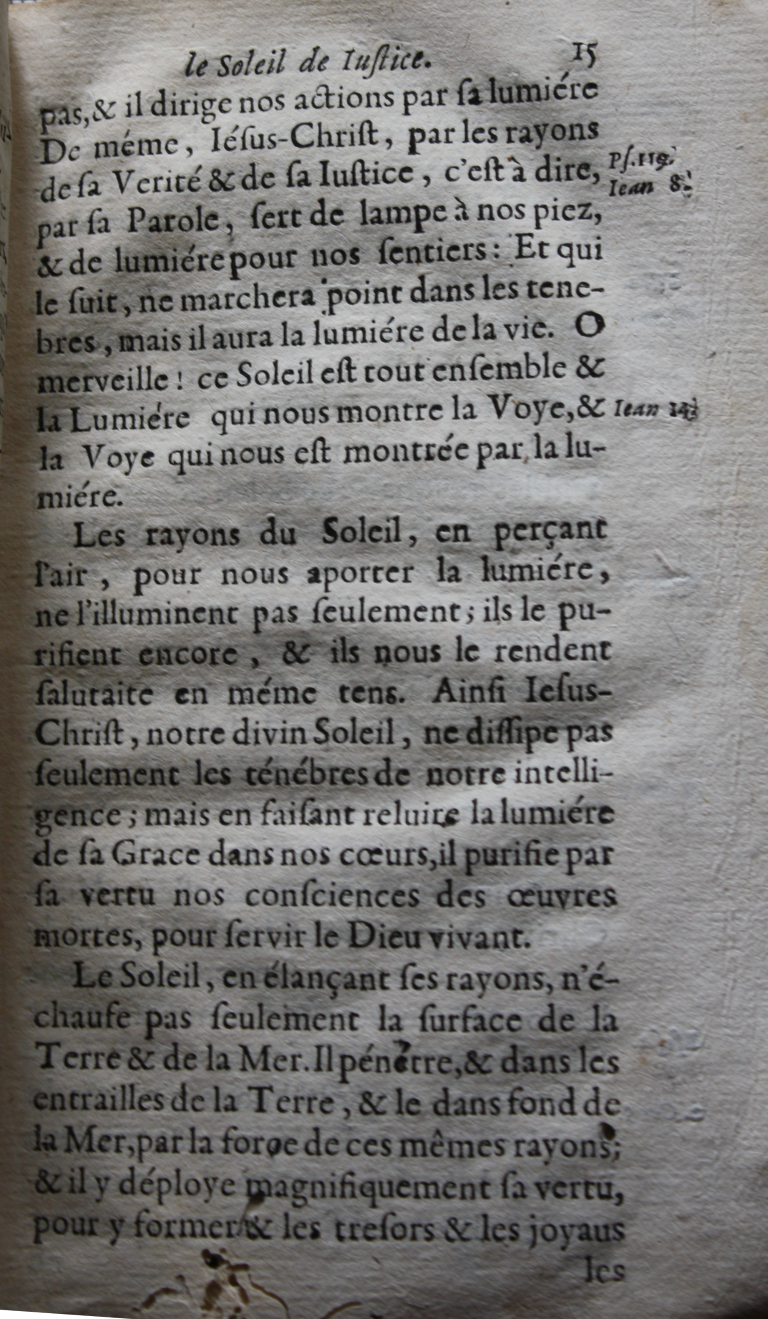 le Soleil de Iuſtice. 15
pas,& il dirige nos actions par ſa lumiére
De méme, Iéſus-Chriſt, par les rayons
de ſa Verité & de ſa Iuſtice, c'eſt à dire, Pſ. 119.
par ſa Parole, ſert de lampe à nos piez, Iean 8.
& de lumiére pour nos ſentiers: Et qui
le ſuit, ne marchera point dans les tene-
bres, mais il aura la lumiére de la vie. O
merveille! ce Soleil eſt tout enſemble &
la Lumiére qui nous montre la Voye,& Iean 14
la Voye qui nous eſt montrée par la lu-
miére.
Les rayons du Soleil, en perçant
l'air, pour nous aporter la lumiére,
ne l'illuminent pas ſeulement; ils le pu-
rifient encore, & ils nous le rendent
ſalutaite en méme tens. Ainſi Ieſus-
Chriſt, notre divin Soleil, ne diſſipe pas
ſeulement les ténébres de notre intelli-
gence; mais en faiſant reluire la lumiére
de ſa Grace dans nos cœurs,il purifie par
ſa vertu nos conſciences des œuvres
mortes, pour ſervir le Dieu vivant.
Le Soleil, en élançant ſes rayons, n'é-
chaufe pas ſeulement la ſurface de la
Terre & de la Mer. Il pénètre,& dans les
entrailles de la Terre, & le dans fond de
la Mer,par la force de ces mêmes rayons;
& il y déploye magnifiquement ſa vertu,
pour y former & les treſors & les joyaus
les